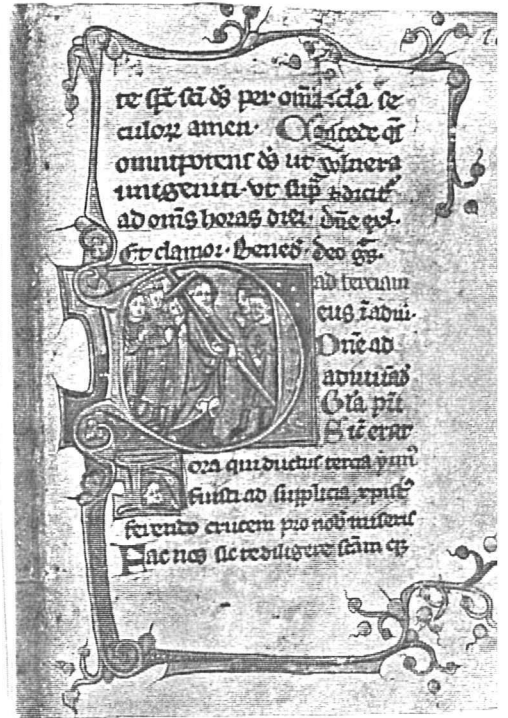 te sp̄c sc̄i d̄s per om̄ia scl̄a se
culoꝝ amen. Concede qs̄
omnipotens d̄s ut wlnera
unigeniti. vt sup̄
ad om̄s horas diei. dn̄e
Et clamor. Bened. deo gr̄s.
ad terciam
eus ī adiu.
Dn̄e ad
adiuuād
Gl̄a pr̄i
Sic̄ erat
ora qui ductus tercia
fuisti ad supplicia, xpiste
ferendo crucem pro nob̄ miseris
Fac nos sic te diligere sc̄am qꝫ